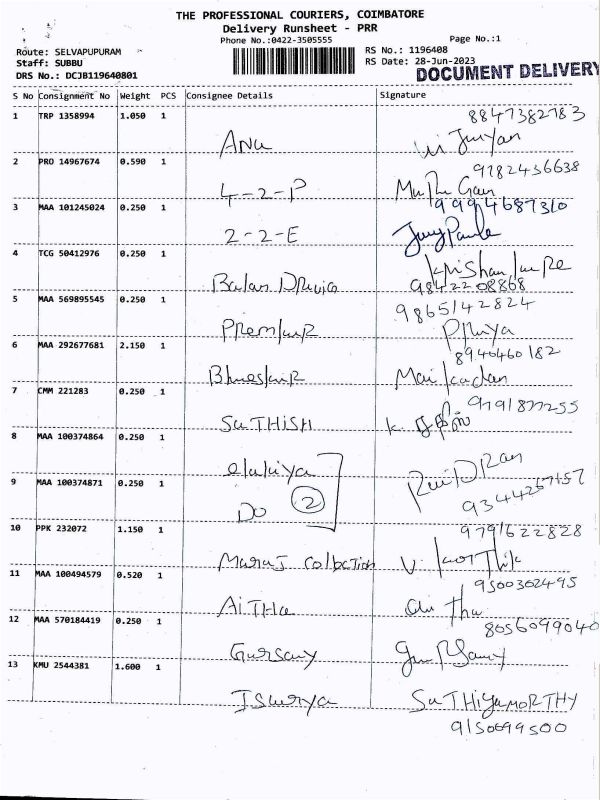 THE PROFESSIONAL COURIERS, COIMBATORE
Delivery Runsheet - PRR
Phone No.:0422-3505555 Page No.:1
Route: SELVAPUPURAM RS No.: 1196408
Staff: SUBBU RS Date: 28-Jun-2023
DRS No.: DCJB119640801 DOCUMENT DELIVERY
S No Consignment No Weight PCS Consignee Details Signature
1 TRP 1358994 1.050 1
8847382783
Anu
2 PRO 14967674 0.590 1
9782436638
4-2-P
3 MAA 101245024 0.250 1
9994687310
2-2-E
4 TCG 50412976 0.250 1
Balan
9842208868
5 MAA 569895545 0.250 1
9865142824
Premkur Priya
6 MAA 292677681 2.150 1
8940460182
7 CMM 221283 0.250 1
SUTHISH K.
8 MAA 100374864 0.250 1
elakiya
9 MAA 100374871 0.250 1
Do 2
9344267157
10 PPK 232072 1.150 1
9791622828
V. Karthik
11 MAA 100494579 0.520 1
9500302495
AiTHa
12 MAA 570184419 0.250 1
8056099040
Gursamy
13 KMU 2544381 1.600 1
ISurya SuTHiYaMORTHY
9150699500